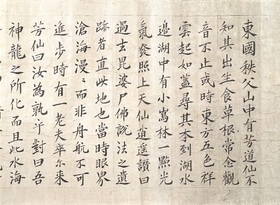 東國秩父山中有芳道仙不
知其出生食草根常念觀
音不止或時東方五色祥
雲起如蓋尋其本到湖水
邊湖中有小嶌林一點光
氣發照上天仙道遥讚曰
過去毘婆尸佛說法之遺
跡者直此地也當時眼界
滄海漫〻而非舟航不可
進步時有一老夫年尓来
芳仙曰汝為孰乎對曰吾
神龍之所化而且此水海